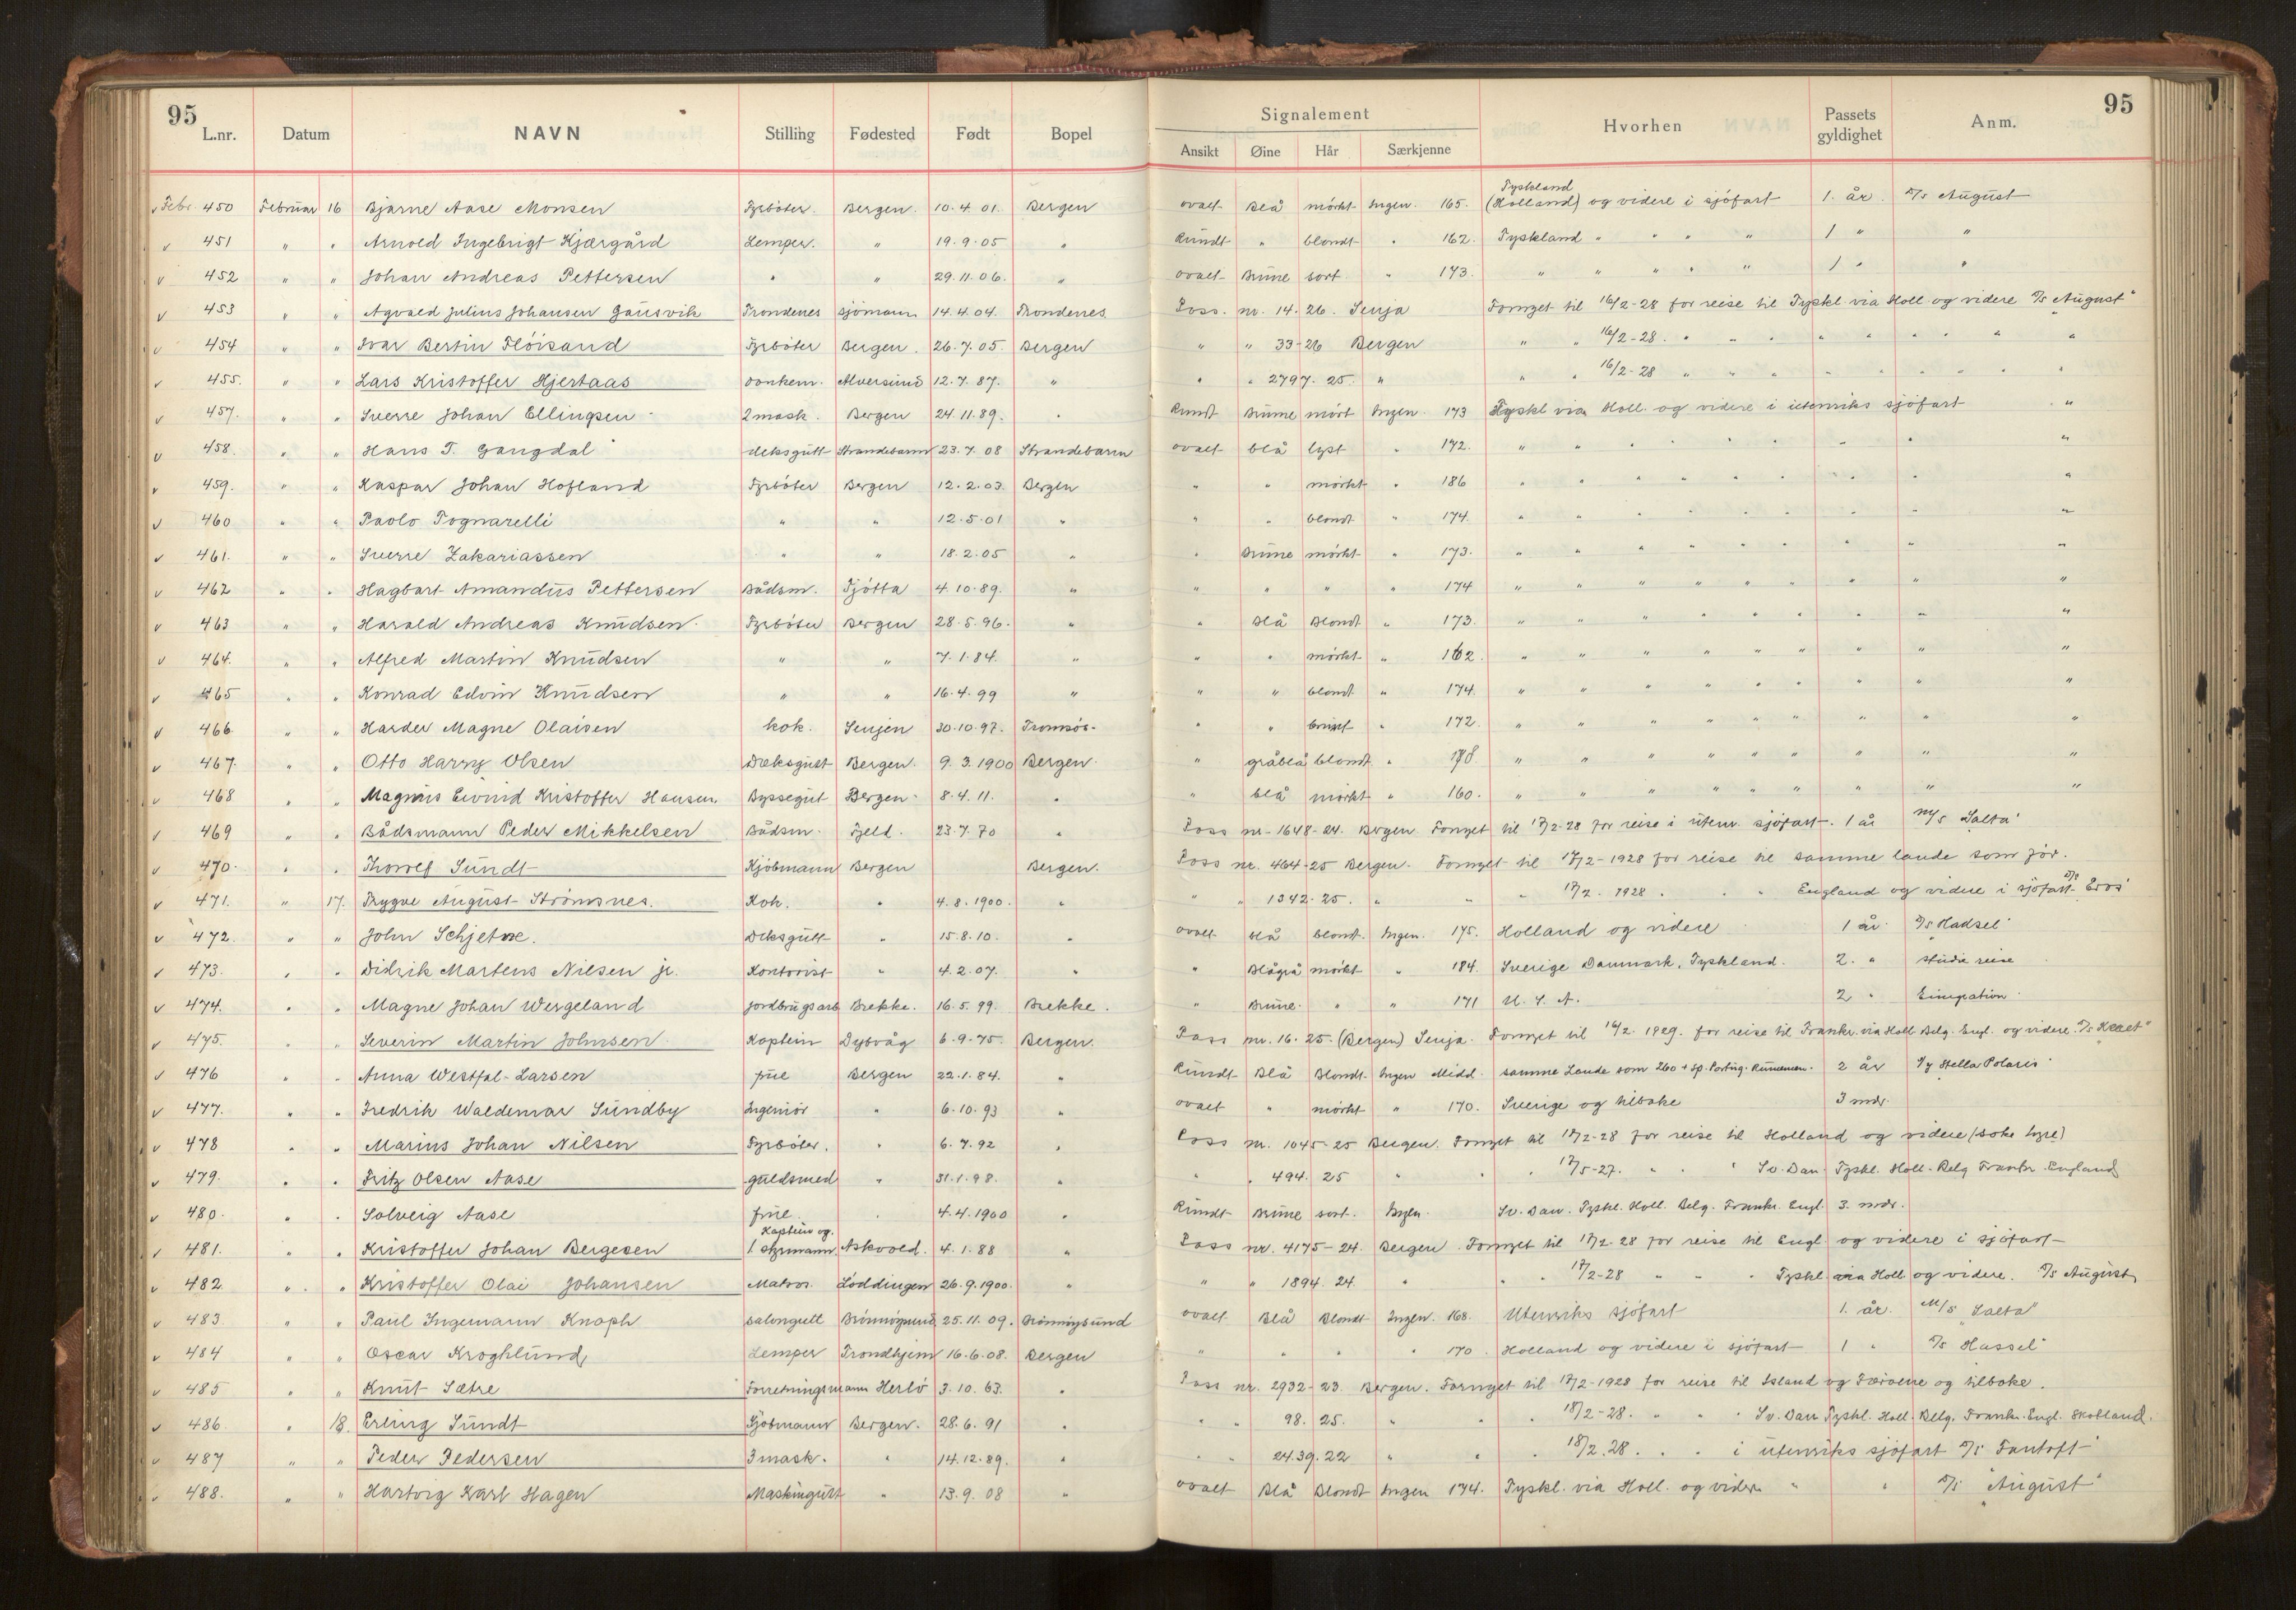 95
L.nr. Datum NAVN Stilling Fødested Født Bopel
Signalement
Ansikt Øine Hår Særkjenne Hvorhen Passets gyldighet Anm.
95
Tyskland
Febr 450 Februar 16 Bjarne Aase Monsen Fyrbøter. Bergen. 10.4.01. Bergen ovalt Blå mørkt Ingen. 165. (Holland) og videre i sjøfart 1. år. D/s August
451 " " Arnold Ingebrigt Kjærgård Lemper. " 19.9.05 " Rundt " blondt " 162. Tyskland " " " " 1 " "
452 " " Johan Andreas Pettersen " " 29.11.06. " ovalt Brune sort " 173. " " " " " 1 " "
453 " " Agvald Julius Johansen Gausvik Trondenes sjømann 14.4.04. Trondenes Pass. nr. 14. 26. Senja Fornyet til 16/2-28 for reise til Tyskl via Holl og videre D/s August"
454 " " Ivar Bertin Fløisand Fyrbøter Bergen. 26.7.05. Bergen " " 33-26 Bergen " " 16/2-28. " " " " " " " "
455. " " Lars Kristoffer Hjertaas Alversund 12.7.87. " " " 2797. 25. " " " 16/2-28 " " " " " " " "
457. " " Sverre Johan Ellingsen 2 mask. Bergen 24.11.89. " Rundt Brune mørt Ingen. 173 Tyskl via Holl. og videre i utenriks sjøfart "
458. " " Hans T. Gangdal deksgutt Strandebarm 23.7.08 Strandebarm ovalt blå lyst " 172. " " " " " " " " "
459. " " Kaspar Johan Hofland Fyrbøter Bergen 12.2.03. Bergen " " mørkt " 186 " " " " " " " " "
460 " " Paolo Tognarelli " " 12.5.01 " " " blondt " 174. " " " " " " " " "
461. " " Sverre Zakariassen " " 18.2.05 " " Brune mørkt " 173. " " " " " " " " "
462 " " Hagbart Amandus Pettersen Bådsm. Tjøtta 4.10.89. " " " " " 174 " " " " " " " " "
463 " " Harald Andreas Knudsen. Fyrbøter Bergen 28.5.96. " " Blå Blondt " 173. " " " " " " " " "
464. " " Alfred Martin Knudsen " " 7.1.84. " " " mørkt " 162. " " " " " " " " "
465 " " Konrad Edvin Knudsen " " 16.4.99 " " " blondt " 174. " " " " " " " " "
466 " " Harder Magne Olaisen kok. Senjen 30.10.97. Tromsös. " " brunt " 172. " " " " " " " " "
467. " " Otto Harry Olsen Dæksgutt Bergen. 9.3.1900 Bergen. " gråblå blondt " 178. " " " " " " " " "
468 " " Magnus Eivind Kristoffer Hansen. Byssegut Bergen. 8.4.11. " " blå mørkt " 160. " " " " " " " " "
469 " " Bådsmann Peder Mikkelsen Bådsm. Fjeld. 23.7.70 " Pass nr. 1648-24. Bergen Fornyet til 17/2-28 for reise i utenr. sjøfart. 1 år M/s Salta"
470. " " Thorolf Sundt Kjøbmann Bergen Bergen. Pass nr. 464-25 Bergen. Fornyet til 17/2-1928 for reise til samme lande som før.
471. " 17. Thygve August Strømsnes. Kok. " 4.8.1900. " " " 1342.25. " " " 17/2. 1928. " " England og videre i sjøfart D/s Eros"
472. " " John Schjetne. Deksgutt " 15.8.10. " ovalt blå blondt. Ingen. 175. Holland og videre 1 år. D/s Hadsel"
473. " " Didrik Martens Nilsen jr. Kontorist " 4.2.07. " " Blågrå mørkt " 184. Sverige Danmark. Tyskland. 2. " studie reise
474. " " Magne Johan Wergeland jordbrugsarb Brekke. 16.5.99. Brekke. " Brune. " " 171 U.S.A. 2 " Emigration.
475. " " Severin Martin Johnsen Kaptein Dybvåg 6.9.75. Bergen. Pass nr. 16. 25. (Bergen) Senja. Fornyet til 16/2. 1929. for reise til Frankr. via Holl Belg. Engl. og videre.
476 " " Anna Westfal-Larsen frue Bergen 22.1.84. " Rundt Blå Blondt. Ingen Midd. samme Lande som 260 + Sp. Portug. 2 år D/y Stella Polaris
477. " " Fredrik Waldemar Sundby Ingeniør " 6.10.93 " ovalt " mørkt " 170. Sverige og tilbake 3 mdr.
478 " " Marius Johan Nilsen Fyrbøter. " 6.7.92 " Pass nr. 1045-25 Bergen. Fornyet til 17/2-28 for reise til Holland og videre (søke hyre)
479. " " Fritz Olsen Aase guldsmed " 31.1.98. " " " 494. 25 " " " 17/5-27. " " " Sv. Dan Tyskl. Holl. Belg Frankr. England
480. " " Solveig Aase frue. " 4.4.1900 " Rundt Brune sort. Ingen. Sv. Dan. Tyskl. Holl. Belg. Frankr. Engl. 3. mdr.
Kaptein og.
481. " " Kristoffer Johan Bergesen 1. styrmann. Askvoll. 4.1.88 " Pass nr. 4175-24. Bergen. Fornyet til 17/2.28 for reise til Engl og videre i sjøfart
482 " " Kristoffer Olai Johansen Matros. Løddingen 26.9.1900. " " " 1894. 24. " " " 17/2-28 " " " Tyskl via Holl og videre. D/s August
483. " " Paul Ingemann Knoph salongutt Brønnøysund 25.11.09. Brønnøysund ovalt Blå Blondt Ingen. 168. Utenriks sjøfart 1. år. M/s Salta"
484 " " Oscar Kroghlund Lemper Trondhjem 16.6.08. Bergen " " " " 170. Holland og videre i sjøfart 1 " D/s Hassel"
485 " " Knut Sætre Forretningsmann Herlö 3.10.63. " Pass nr. 2932-23. Bergen. Fornyet til 17/2-1928 for reise til Island og Færøene og tilbake.
486. " 18. Erling Sundt Kjøbmann Bergen. 28.6.91 " " " 98. 25. " " " 18/2-28. " " " Sv. Dan Tyskl. Holl. Belg. Frankr. Engl. Skotland.
487 " " Peder Pedersen 3 mask. " 14.12.89. " " " 24.39.22 " " " 18/2.28. " " i utenriks sjøfart D/s Fantoft"
488. " " Hartvig Karl Hagen Maskingutt " 13.9.08 " ovalt Blå Blondt Ingen 174. Tyskl. via Holl. og videre " " D/s "August"